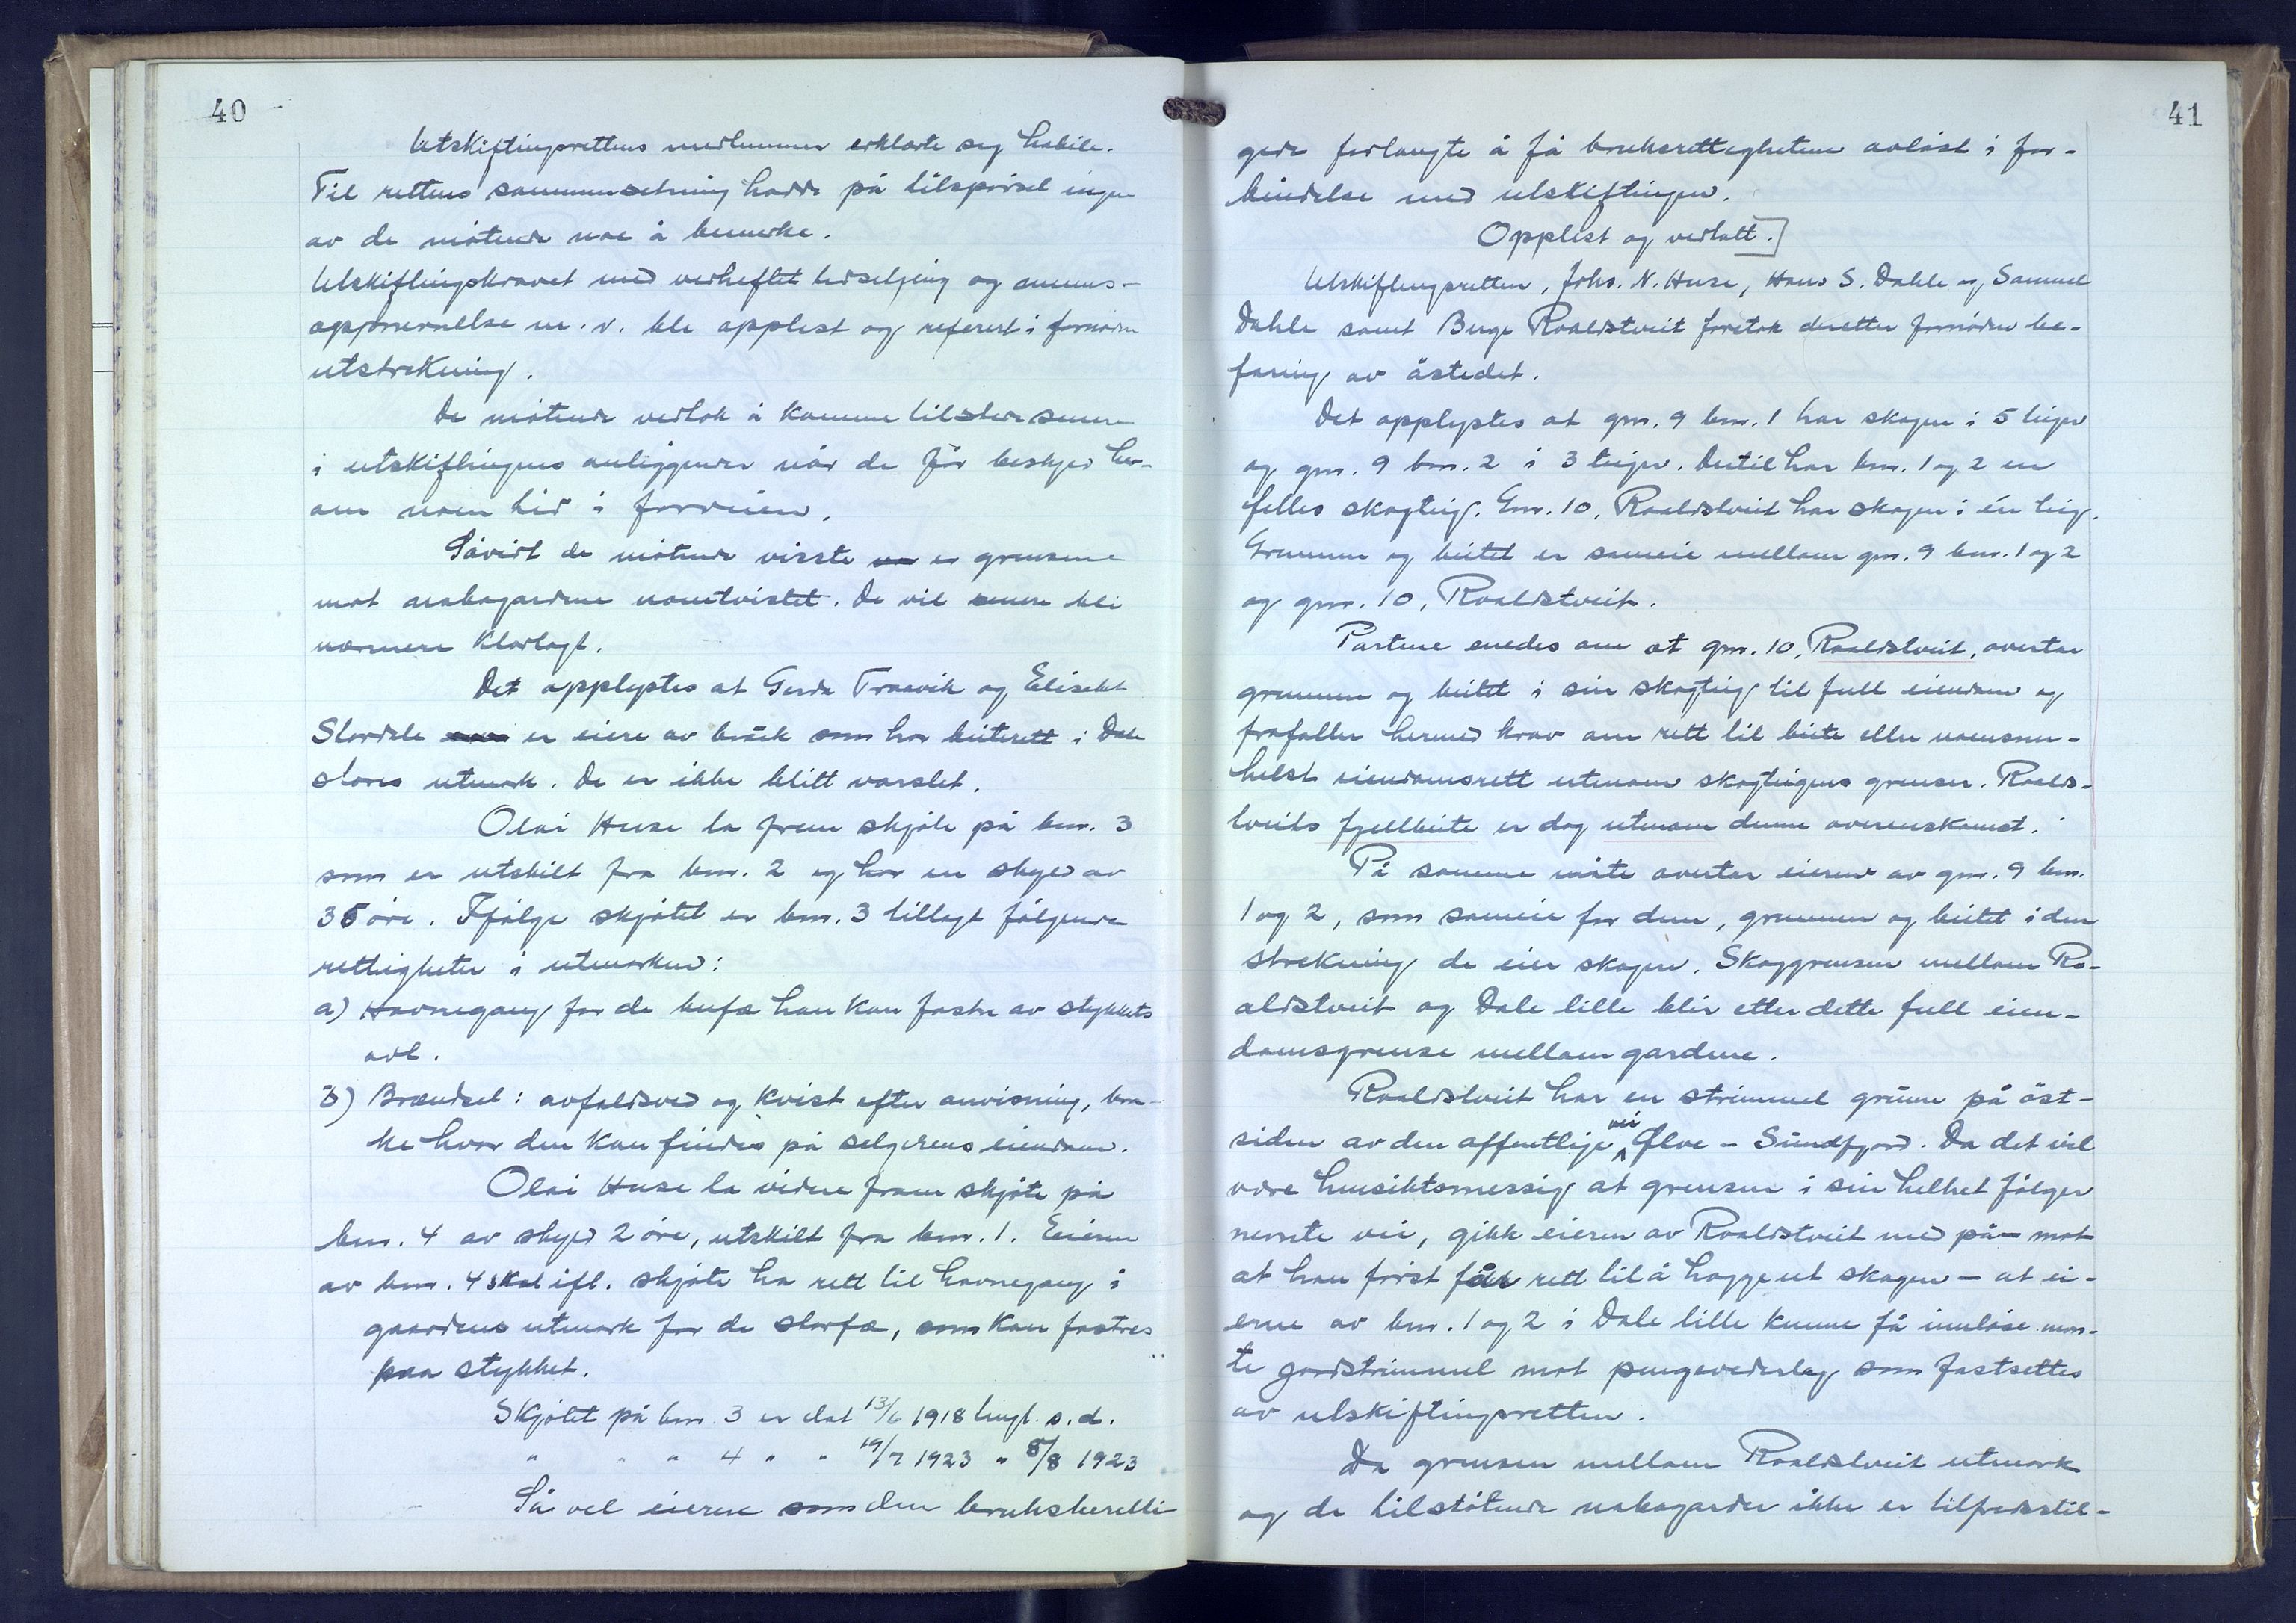 40
Utskiftingsrettens medlemmer erklærte seg habile.
Til rettens sammensetning hadde på tilspørsel ingen
av de møtende noe å bemerke.
Utskiftingskravet med vedheftet utseljing og
oppnevnelse m. v. ble opplest og referert i fornøden
utstrekning.
De møtende vedtok å komme tilstede senere
i utskiftingens anliggender når de får beskjed her-
om noen tid i forveien.
Såvidt de møtende visste er grensene
mot nabogardene uomtvistet. De vil senere bli
nærmere klarlagt.
Det opplystes at Gerda Traavik og Elisabet
Stordale er eiere av bruk som har beiterett i Dale
stores utmark. De er ikke blitt varslet.
Olai Huse la frem skjöte på bnr. 3
som er utskilt fra bnr. 2 og har en skyld av
35 øre. Ifølge skjøtet er bnr. 3 tillagt følgende
rettigheter i utmarken:
a) Havnegang for de bufæ han kan fostre av stykkets
avl.
b) Brændsel: avfaldsved og kvist efter anvisning, bra-
ke hvor den kan findes på selgerens eiendom.
Olai Huse la videre fram skjøte på
bnr. 4 av skyld 2 øre, utskilt fra bnr. 1. Eieren
av bnr. 4 skal ifl. skjøte ha rett til havnegang i
gaardens utmark for de storfæ, som kan fostres
paa stykket.
Skjøtet på bnr. 3 er dat 13/6 1918 tingl. s. d.
" " " 4 " " 19/7 1923 " 8/8 1923
Så vel eierne som den bruksberetti-
41
gede forlangte å få bruksrettighetene avløst i for-
bindelse med utskiftingen.
Opplest og vedtatt.
Utskiftingsretten, Johs. N. Huse, Hans S. Dahle og Samuel
Dahle samt Berge Roaldstveit foretok deretter fornøden be-
faring av åstedet.
Det opplystes at gnr. 9 bnr. 1 har skogen i 5 teiger
og gnr. 9 bnr. 2 i 3 teiger. Dertil har bnr. 1 og 2 en
felles skogteig. Gnr. 10, Roaldstveit har skogen i én teig.
Grunnen og beitet er sameie mellom gnr. 9 bnr. 1 og 2
og gnr. 10, Roaldstveit.
Partene enedes om at gnr. 10, Roaldstveit, overtar
grunnen og beitet i sin skogteig til full eiendom og
frafaller hermed krav om rett til beite eller noensom-
helst eiendomsrett utenom skogteigens grenser. Roalds-
tveits fjellbeite er dog utenom denne overenskomst.
På samme måte overtar eierne av gnr. 9 bnr.
1 og 2, som sameie for dem, grunnen og beitet i den
strekning de eier skogen. Skoggrensen mellom Ro-
aldstveit og Dale lille blir etter dette full eien-
domsgrense mellom gardene.
Roaldstveit har en strimmel grunn på öst-
siden av den offentlige vei Ølve - Sundfjord. Da det vil
være hensiktsmessig at grensen i sin helhet følger
nemte vei, gikk eieren av Roaldstveit med på - mot
at han først får rett til å hogge ut skogen - at ei-
erne av bnr. 1 og 2 i Dale lille kunne få innløse nem-
te jordstrimmel mot pengevederlag som fastsettes
av utskiftingsretten.
Da grensen mellom Roaldstveit utmark
og de tilstøtende nabogarder ikke er tilfredsstil-